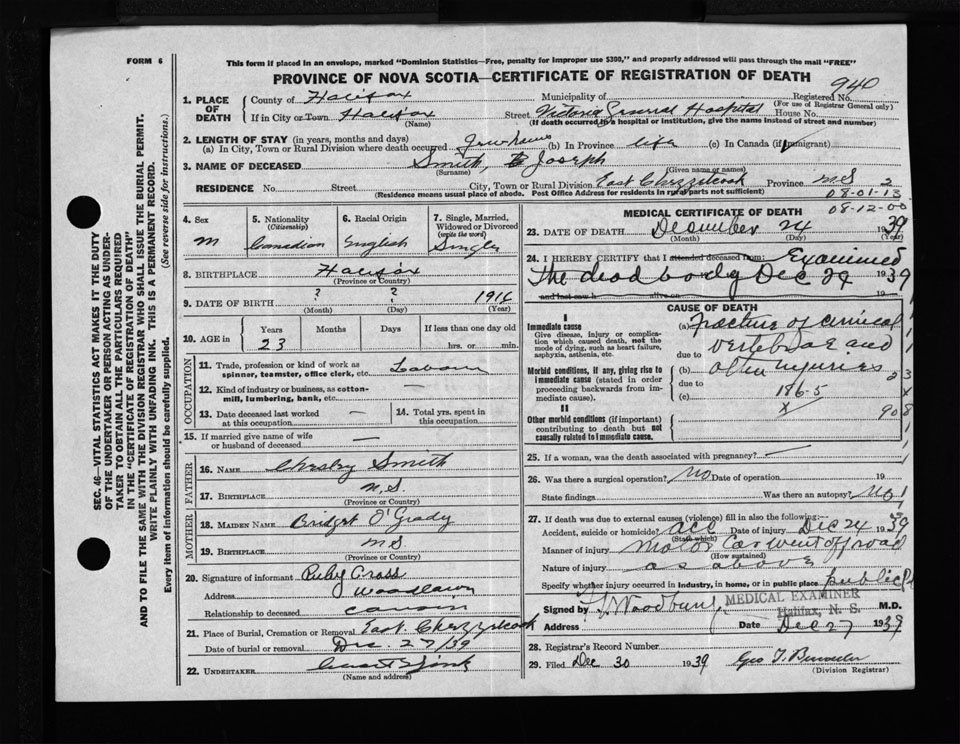 FORM 6
This form if placed in an envelope, marked "Dominion Statistics—Free, penalty for improper use $300," and properly addressed will pass through the mail "FREE"
PROVINCE OF NOVA SCOTIA—CERTIFICATE OF REGISTRATION OF DEATH
940
1. PLACE OF DEATH
County of Halifax Municipality of Registered No.
(For use of Registrar General only)
If in City or Town Halifax Street Victoria General Hospital House No.
(Name) (If death occurred in a hospital or institution, give the name instead of street and number)
2. LENGTH OF STAY (in years, months and days)
(a) In City, Town or Rural Division where death occurred Few hours (b) In Province life (c) In Canada (if immigrant)
3. NAME OF DECEASED Smith, Joseph
(Surname) (Given name or names)
RESIDENCE No. Street City, Town or Rural Division East Chezzetcook Province N.S 2
(Residence means usual place of abode. Post Office Address for residents in rural parts not sufficient)
08-01-13
08-12-00
4. Sex
M
5. Nationality
(Citizenship)
Canadian
6. Racial Origin
English
7. Single, Married, Widowed or Divorced
(write the word)
Single
8. BIRTHPLACE Halifax
(Province or Country)
9. DATE OF BIRTH ? ? 1916
(Month) (Day) (Year)
10. AGE in
Years Months Days If less than one day old
23 hrs. or min.
OCCUPATION
11. Trade, profession or kind of work as spinner, teamster, office clerk, etc. Labour
12. Kind of industry or business, as cotton-mill, lumbering, bank, etc. —
13. Date deceased last worked at this occupation — 14. Total yrs. spent in this occupation —
15. If married give name of wife or husband of deceased —
FATHER
16. NAME Chesley Smith
17. BIRTHPLACE N.S
(Province or Country)
MOTHER
18. MAIDEN NAME Bridget O'Grady
19. BIRTHPLACE N.S
(Province or Country)
20. Signature of informant Ruby Gross
Address Woodlawn
Relationship to deceased cousin
21. Place of Burial, Cremation or Removal East Chezzetcook
Date of burial or removal Dec 27/39
22. UNDERTAKER
(Name and address)
MEDICAL CERTIFICATE OF DEATH
23. DATE OF DEATH December 24 1939
(Month) (Day) (Year)
24. I HEREBY CERTIFY that I attended deceased from: Examined
The dead body Dec 24 1939
and last saw h alive on 19
CAUSE OF DEATH
I
Immediate cause
Give disease, injury or complication which caused death, not the mode of dying, such as heart failure, asphyxia, asthenia, etc.
Morbid conditions, if any, giving rise to immediate cause (stated in order proceeding backwards from immediate cause).
II
Other morbid conditions (if important) contributing to death but not causally related to immediate cause.
(a) Fracture of cervical
due to vertebrae and
(b) other injuries
due to
(c) 186-5
X
908
25. If a woman, was the death associated with pregnancy? —
26. Was there a surgical operation? No Date of operation 19
State findings Was there an autopsy? No
27. If death was due to external causes (violence) fill in also the following:—
Accident, suicide or homicide? acc Date of injury Dec 24 1939
(State which)
Manner of injury Motor Car went off road
(How sustained)
Nature of injury as above
Specify whether injury occurred in industry, in home, or in public place public Pl
Signed by Woodbury M.D.
MEDICAL EXAMINER
Halifax, N. S.
Address Date Dec 27 1939
28. Registrar's Record Number
29. Filed Dec 30 1939
(Division Registrar)
SEC. 46—VITAL STATISTICS ACT MAKES IT THE DUTY
OF THE UNDERTAKER OR PERSON ACTING AS UNDER-
TAKER TO OBTAIN ALL THE PARTICULARS REQUIRED
IN THE "CERTIFICATE OF REGISTRATION OF DEATH"
AND TO FILE THE SAME WITH THE DIVISION REGISTRAR WHO SHALL ISSUE THE BURIAL PERMIT.
WRITE PLAINLY WITH UNFADING INK. THIS IS A PERMANENT RECORD.
Every item of information should be carefully supplied. (See reverse side for instructions.)